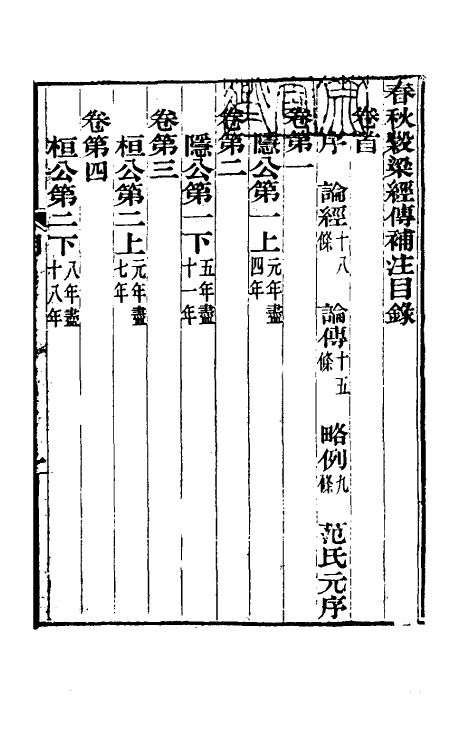 春秋穀梁經傳補注目錄
卷首
序 論經十八條 論傳十五條 略例九條 范氏元序
卷第一
隱公第一上元年盡四年
卷第二
隱公第一下五年盡十一年
卷第三
桓公第二上元年盡七年
卷第四
桓公第二下八年盡十八年